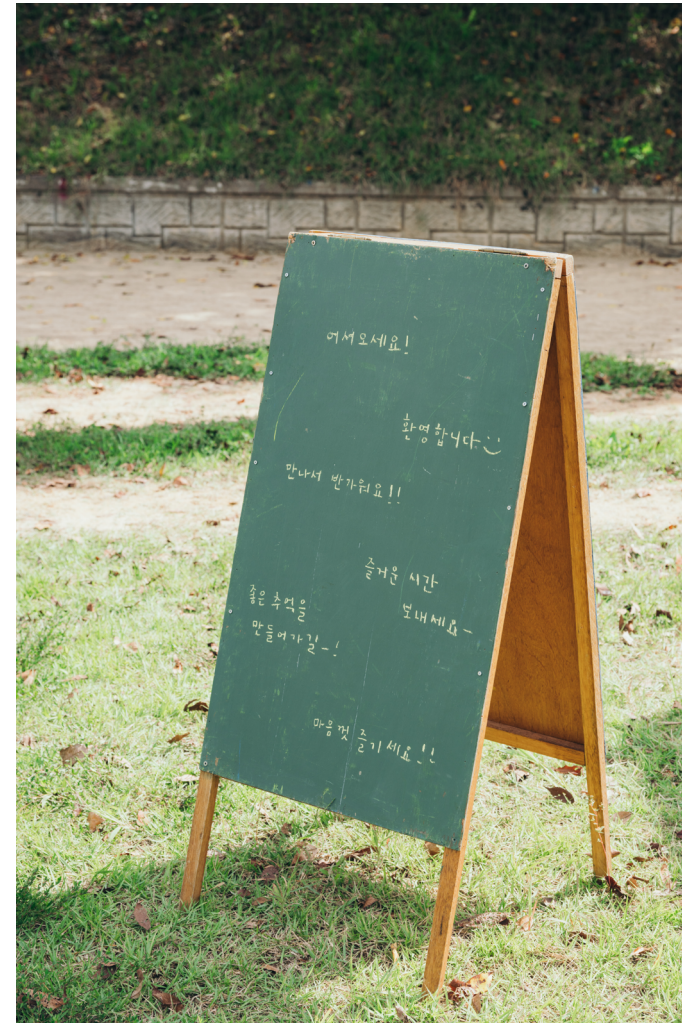 어서오세요!
환영합니다 :)
만나서 반가워요!!
즐거운 시간
보내세요~
좋은 추억을
만들어가길~!
마음껏 즐기세요!!